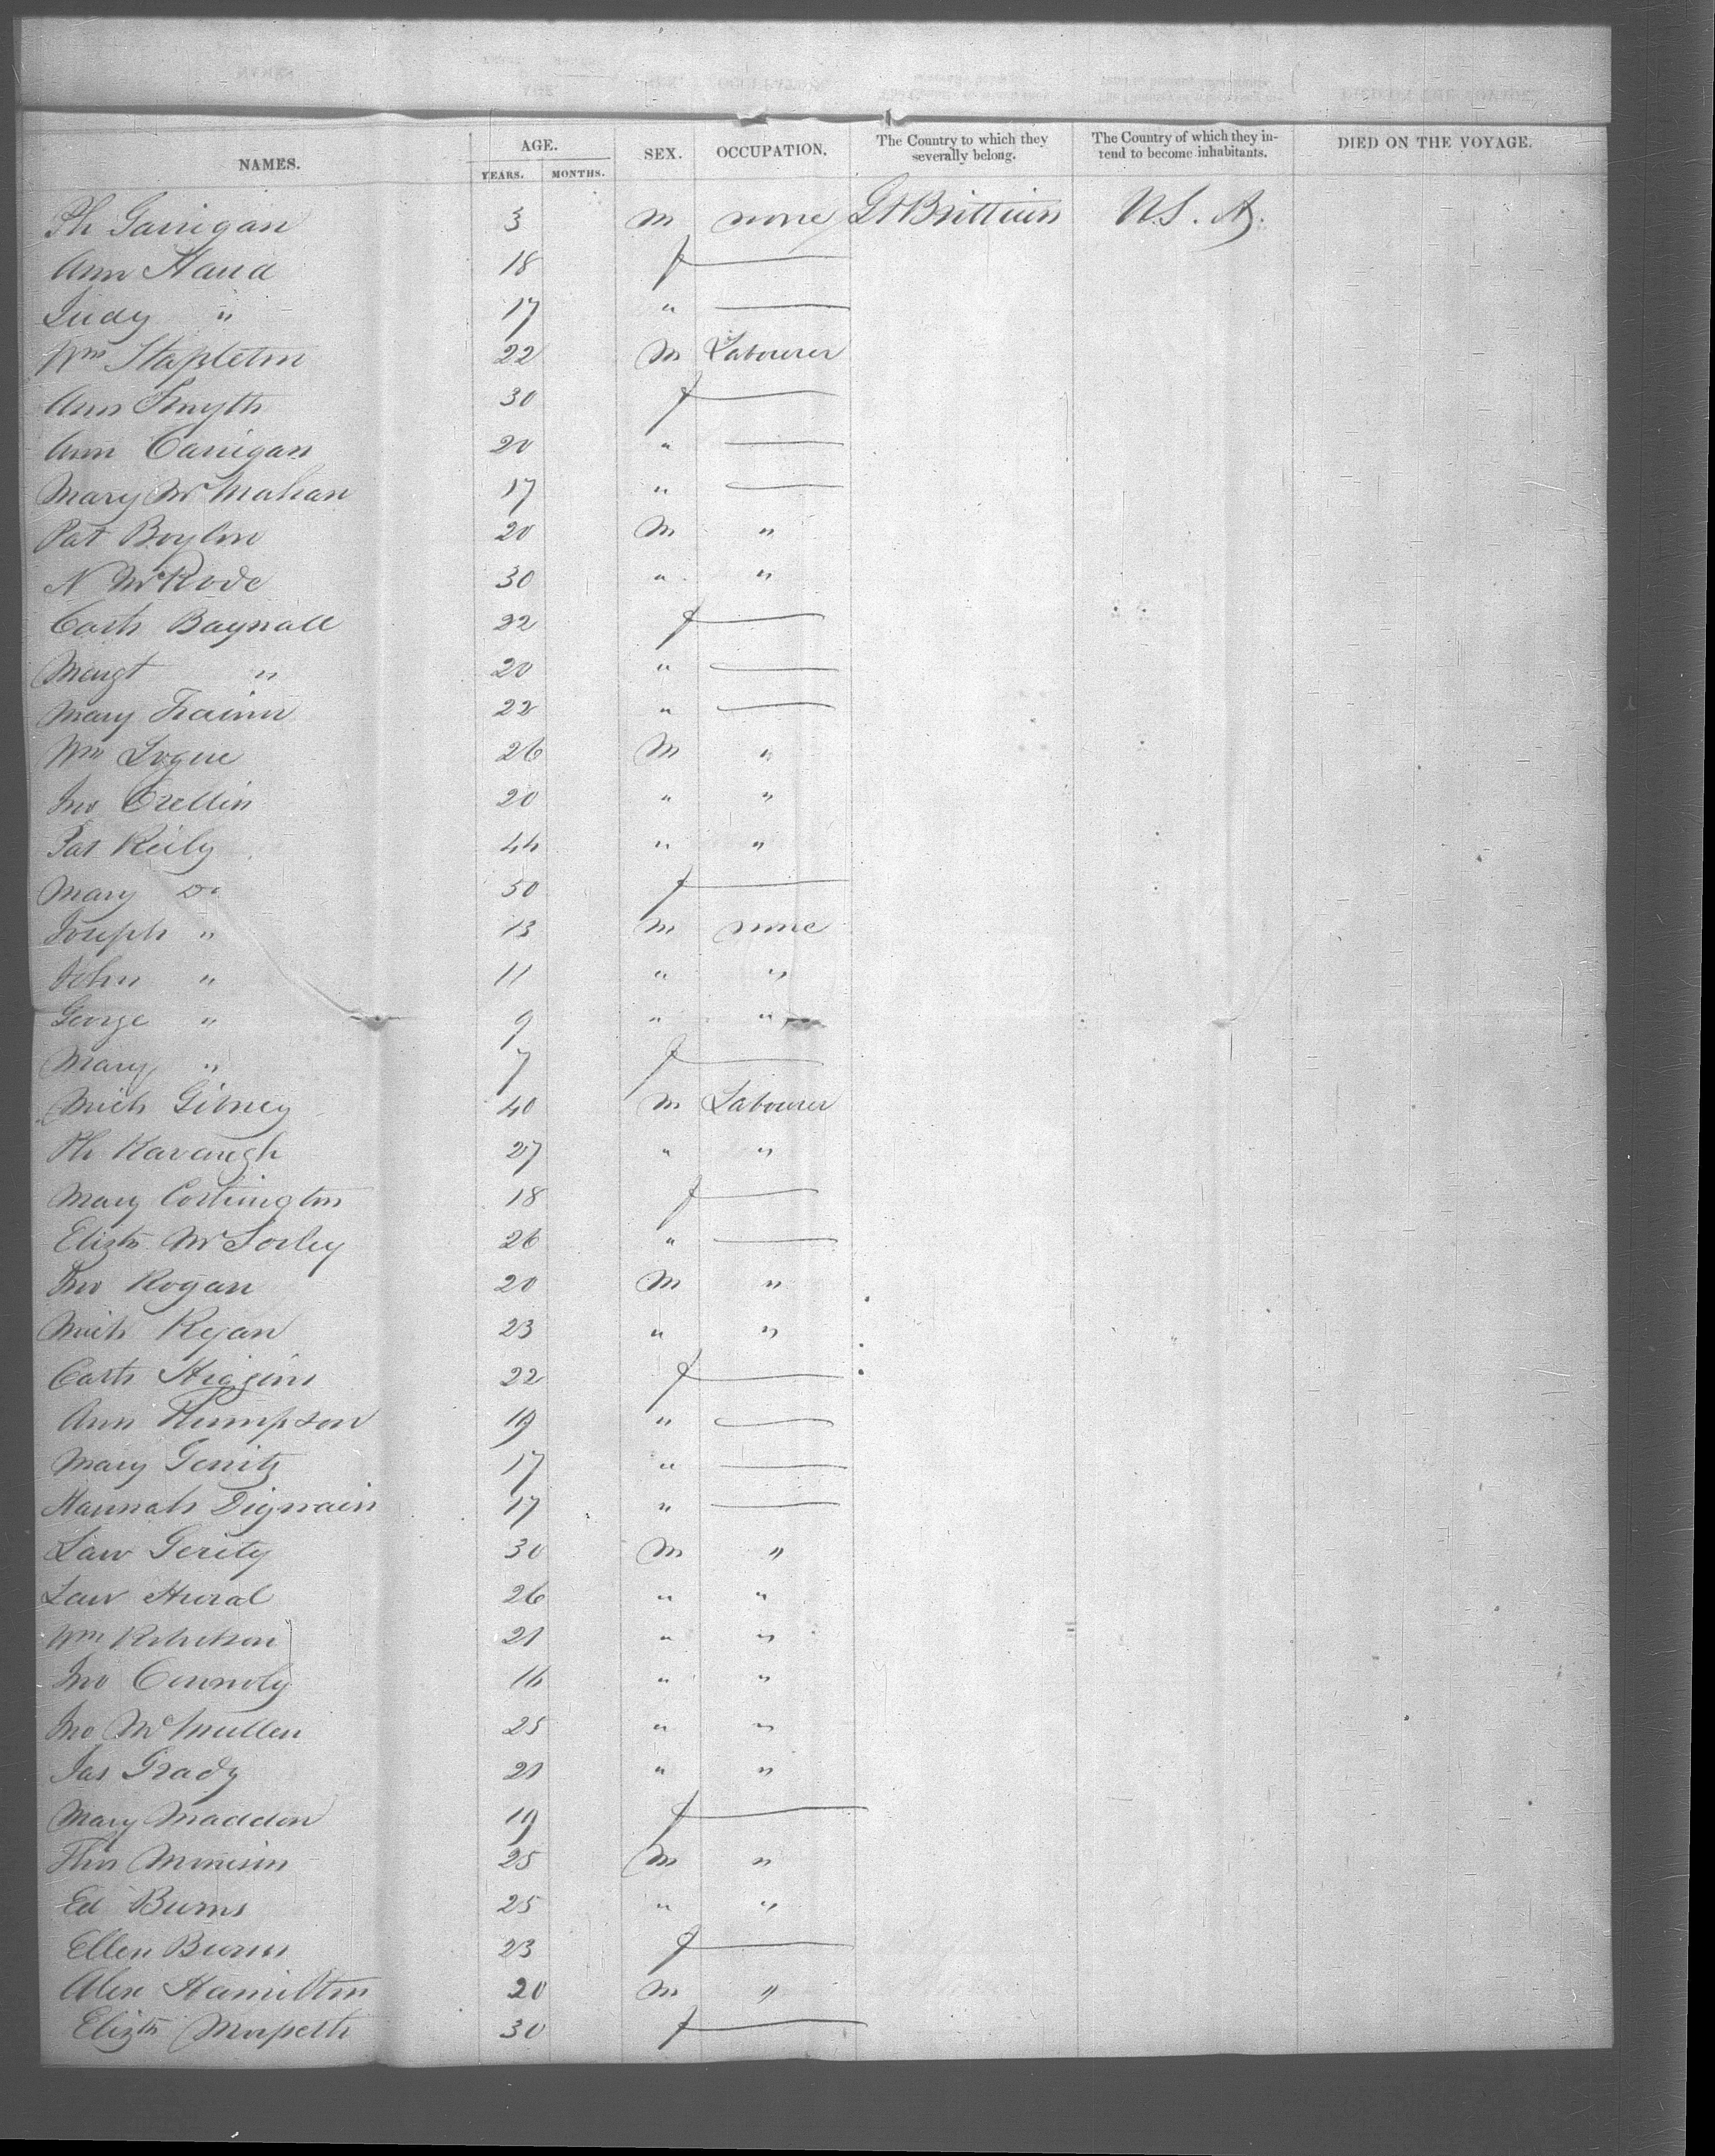 NAMES. AGE. SEX. OCCUPATION. The Country to which they severally belong. The Country of which they intend to become inhabitants. DIED ON THE VOYAGE.
YEARS. MONTHS.
Ph Garrigan 3 m none Gt Brittian U.S.A.
Ann 18 f —
Judy " 17 " —
Wm Stapleton 22 M Labourer
Ann Smyth 30 f —
Ann Carrigan 20 " —
Mary McMahan 17 " —
Pat Boylon 20 M "
N 30 " "
Cath Bagnall 22 f —
Margt " 20 " —
Mary Trainer 22 " —
Wm Logue 26 M "
Jno Crellin 20 " "
Pat Reily 44 " "
Mary Do 50 f —
Joseph " 13 m none
John " 11 " "
George " 9 " "
Mary " 7 f —
Mich Gibney 40 M Labourer
Ph Kavanagh 27 " "
Mary 18 f —
Elizth McSorley 26 " —
Jno Rogan 20 M "
Mich Regan 23 " "
Cath Higgins 22 f —
Ann Thompson 19 " —
Mary 17 " —
Hannah Dignain 17 " —
Law Gerity 30 M "
Law 26 " "
Wm Robertson 21 " "
Jno Connoly 16 " "
Jno McMullen 25 " "
Jas Grady 21 " "
Mary Madden 19 f —
Thos 25 M "
Ed Burns 25 " "
Ellen Burns 23 f —
Alex Hamilton 20 M "
Elizth Morpeth 30 f —